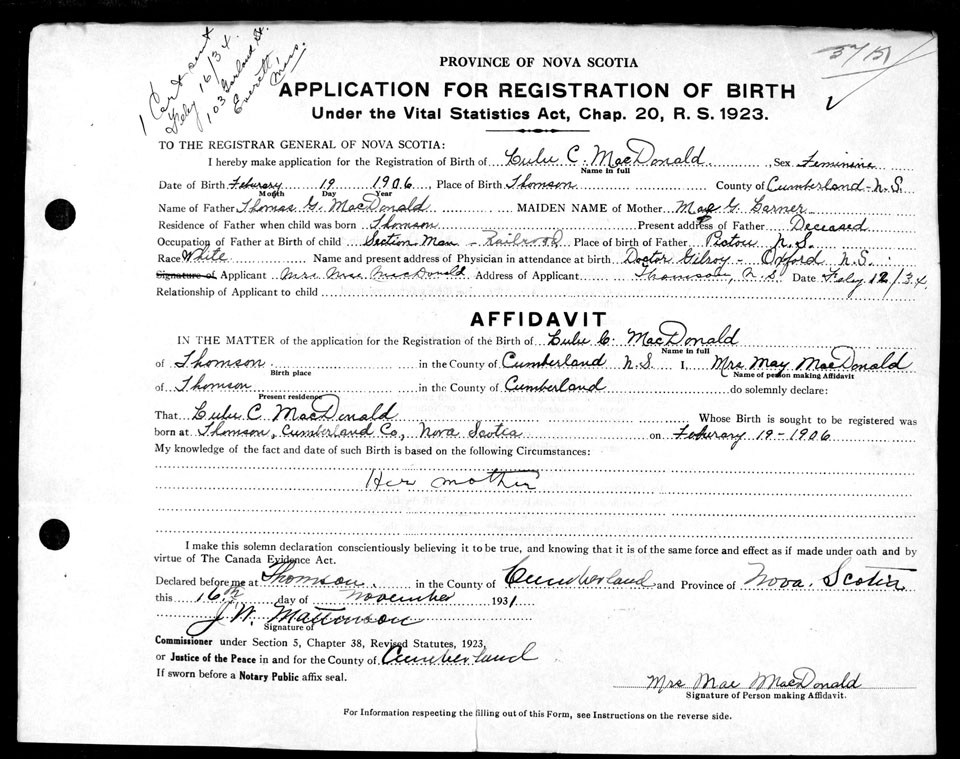 1 Cert sent
Feby 16/34.
103 Garland St.
Everett
Mass.
PROVINCE OF NOVA SCOTIA
APPLICATION FOR REGISTRATION OF BIRTH
Under the Vital Statistics Act, Chap. 20, R. S. 1923.
TO THE REGISTRAR GENERAL OF NOVA SCOTIA:
I hereby make application for the Registration of Birth of Lulu C. MacDonald Sex Feminine
Name in full
Date of Birth Feburary 19 1906 Place of Birth Thomson County of Cumberland N.S.
Month Day Year
Name of Father Thomas G. MacDonald MAIDEN NAME of Mother Mae G. Garner
Residence of Father when child was born Thomson Present address of Father Deceased
Occupation of Father at Birth of child Section Man - Railroad Place of birth of Father Pictou N.S.
Race White Name and present address of Physician in attendance at birth Doctor Gilroy - Oxford N.S.
Signature of Applicant Mrs Mae MacDonald Address of Applicant Thomson, N.S. Date Feby 12/34.
Relationship of Applicant to child
AFFIDAVIT
IN THE MATTER of the application for the Registration of the Birth of Lulu C. MacDonald
Name in full
of Thomson in the County of Cumberland N.S. I, Mrs May MacDonald
Birth place Name of person making Affidavit
of Thomson in the County of Cumberland do solemnly declare:
Present residence
That Lulu C. MacDonald Whose Birth is sought to be registered was
born at Thomson, Cumberland Co, Nova Scotia on Feburary 19-1906
My knowledge of the fact and date of such Birth is based on the following Circumstances:
Her mother
I make this solemn declaration conscientiously believing it to be true, and knowing that it is of the same force and effect as if made under oath and by
virtue of The Canada Evidence Act.
Declared before me at Thomson in the County of Cumberland and Province of Nova Scotia
this 16th day of November 1931
J. W. Mattinson
Signature of
Commissioner under Section 5, Chapter 38, Revised Statutes, 1923,
or Justice of the Peace in and for the County of Cumberland
If sworn before a Notary Public affix seal.
Mrs Mae MacDonald
Signature of Person making Affidavit.
For Information respecting the filling out of this Form, see Instructions on the reverse side.